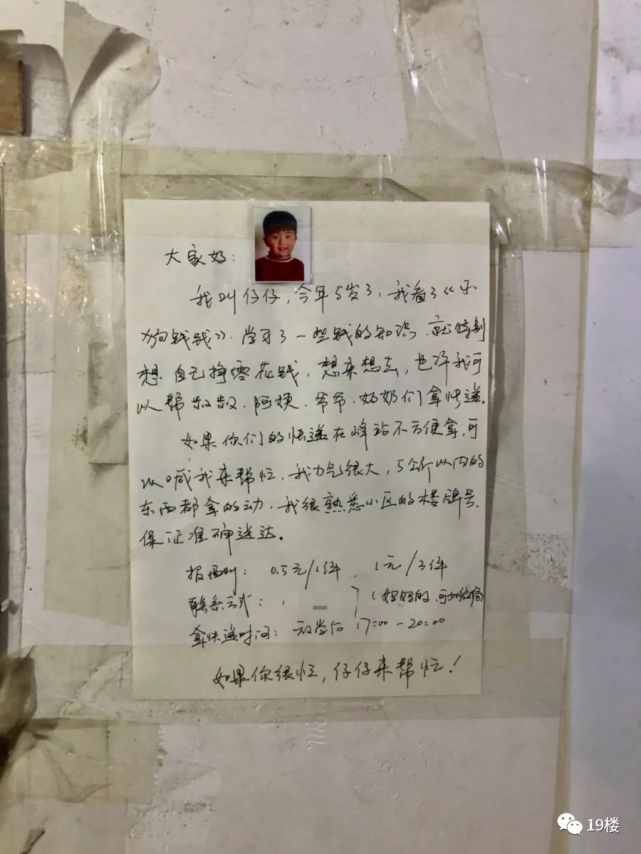 大家好：
我叫仔仔，今年5岁了，我看了《小
狗钱钱》. 学习了一些钱的知识. 就特别
想 自己挣零花钱，想来想去，也许我可
以帮叔叔、阿姨、爷爷、奶奶们拿快递.
如果你们的快递在峰站不方便拿，可
以喊我来帮忙，我力气很大，5公斤以内的
东西都拿的动，我很熟悉小区的楼牌号，
保证准确送达。
报酬： 0.5元/1件、1元/3件
联系方式： (妈妈的,可加微信)
拿快递时间： 放学后 17:00-20:00
如果你很忙，仔仔来帮忙！
19楼